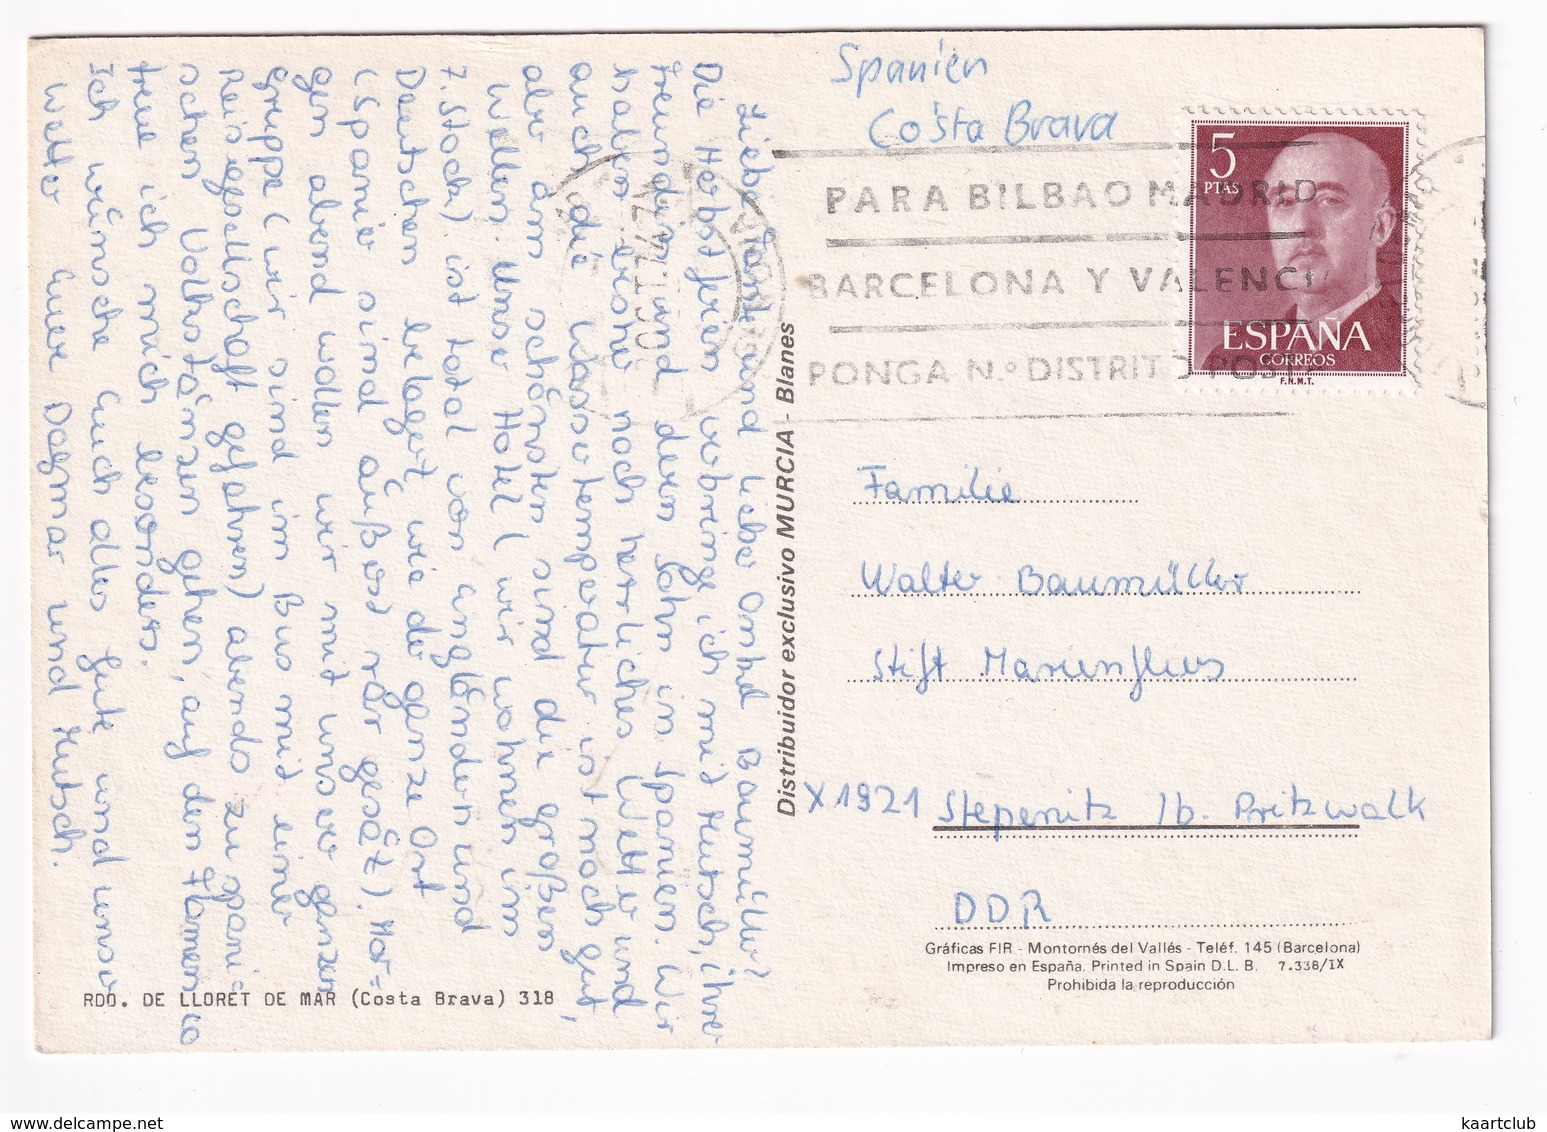 Spanien
Costa Brava
5
PTAS
ESPAÑA
CORREOS
F.N.M.T.
PARA BILBAO MADRID
BARCELONA Y VALENCI
PONGA N.º DISTRITO POST
Liebe Tante und lieber Onkel Baumüller!
Die Herbstferien verbringe ich mit Mutsch, ihrer
Freundin und deren Sohn in Spanien. Wir
haben bisher noch herrliches Wetter und
auch die Wassertemperatur ist noch gut,
aber am schönsten sind die großen
Wellen. Unser Hotel (wir wohnen im
7. Stock) ist total von Engländern und
Deutschen belagert wie der ganze Ort
(Spanier sind äußerst rar gesät). Mor-
gen abend wollen wir mit unserer ganzen
Gruppe (wir sind im Bus mit einer
Reisegesellschaft gefahren) abends zu spani-
schen Volkstänzen gehen, auf den Flamenco
freue ich mich besonders.
Ich wünsche Euch alles Gute und unser
Wetter Eure Dagmar und Mutsch.
RDO. DE LLORET DE MAR (Costa Brava) 318
Distribuidor exclusivo MURCIA - Blanes
Familie
Walter Baumüller
Stift Marienfliess
X1921 Stepenitz /b. Pritzwalk
DDR
Gráficas FIR - Montornés del Vallés - Teléf. 145 (Barcelona)
Impreso en España. Printed in Spain D.L.B. 7.338/IX
Prohibida la reproducción
kaartclub